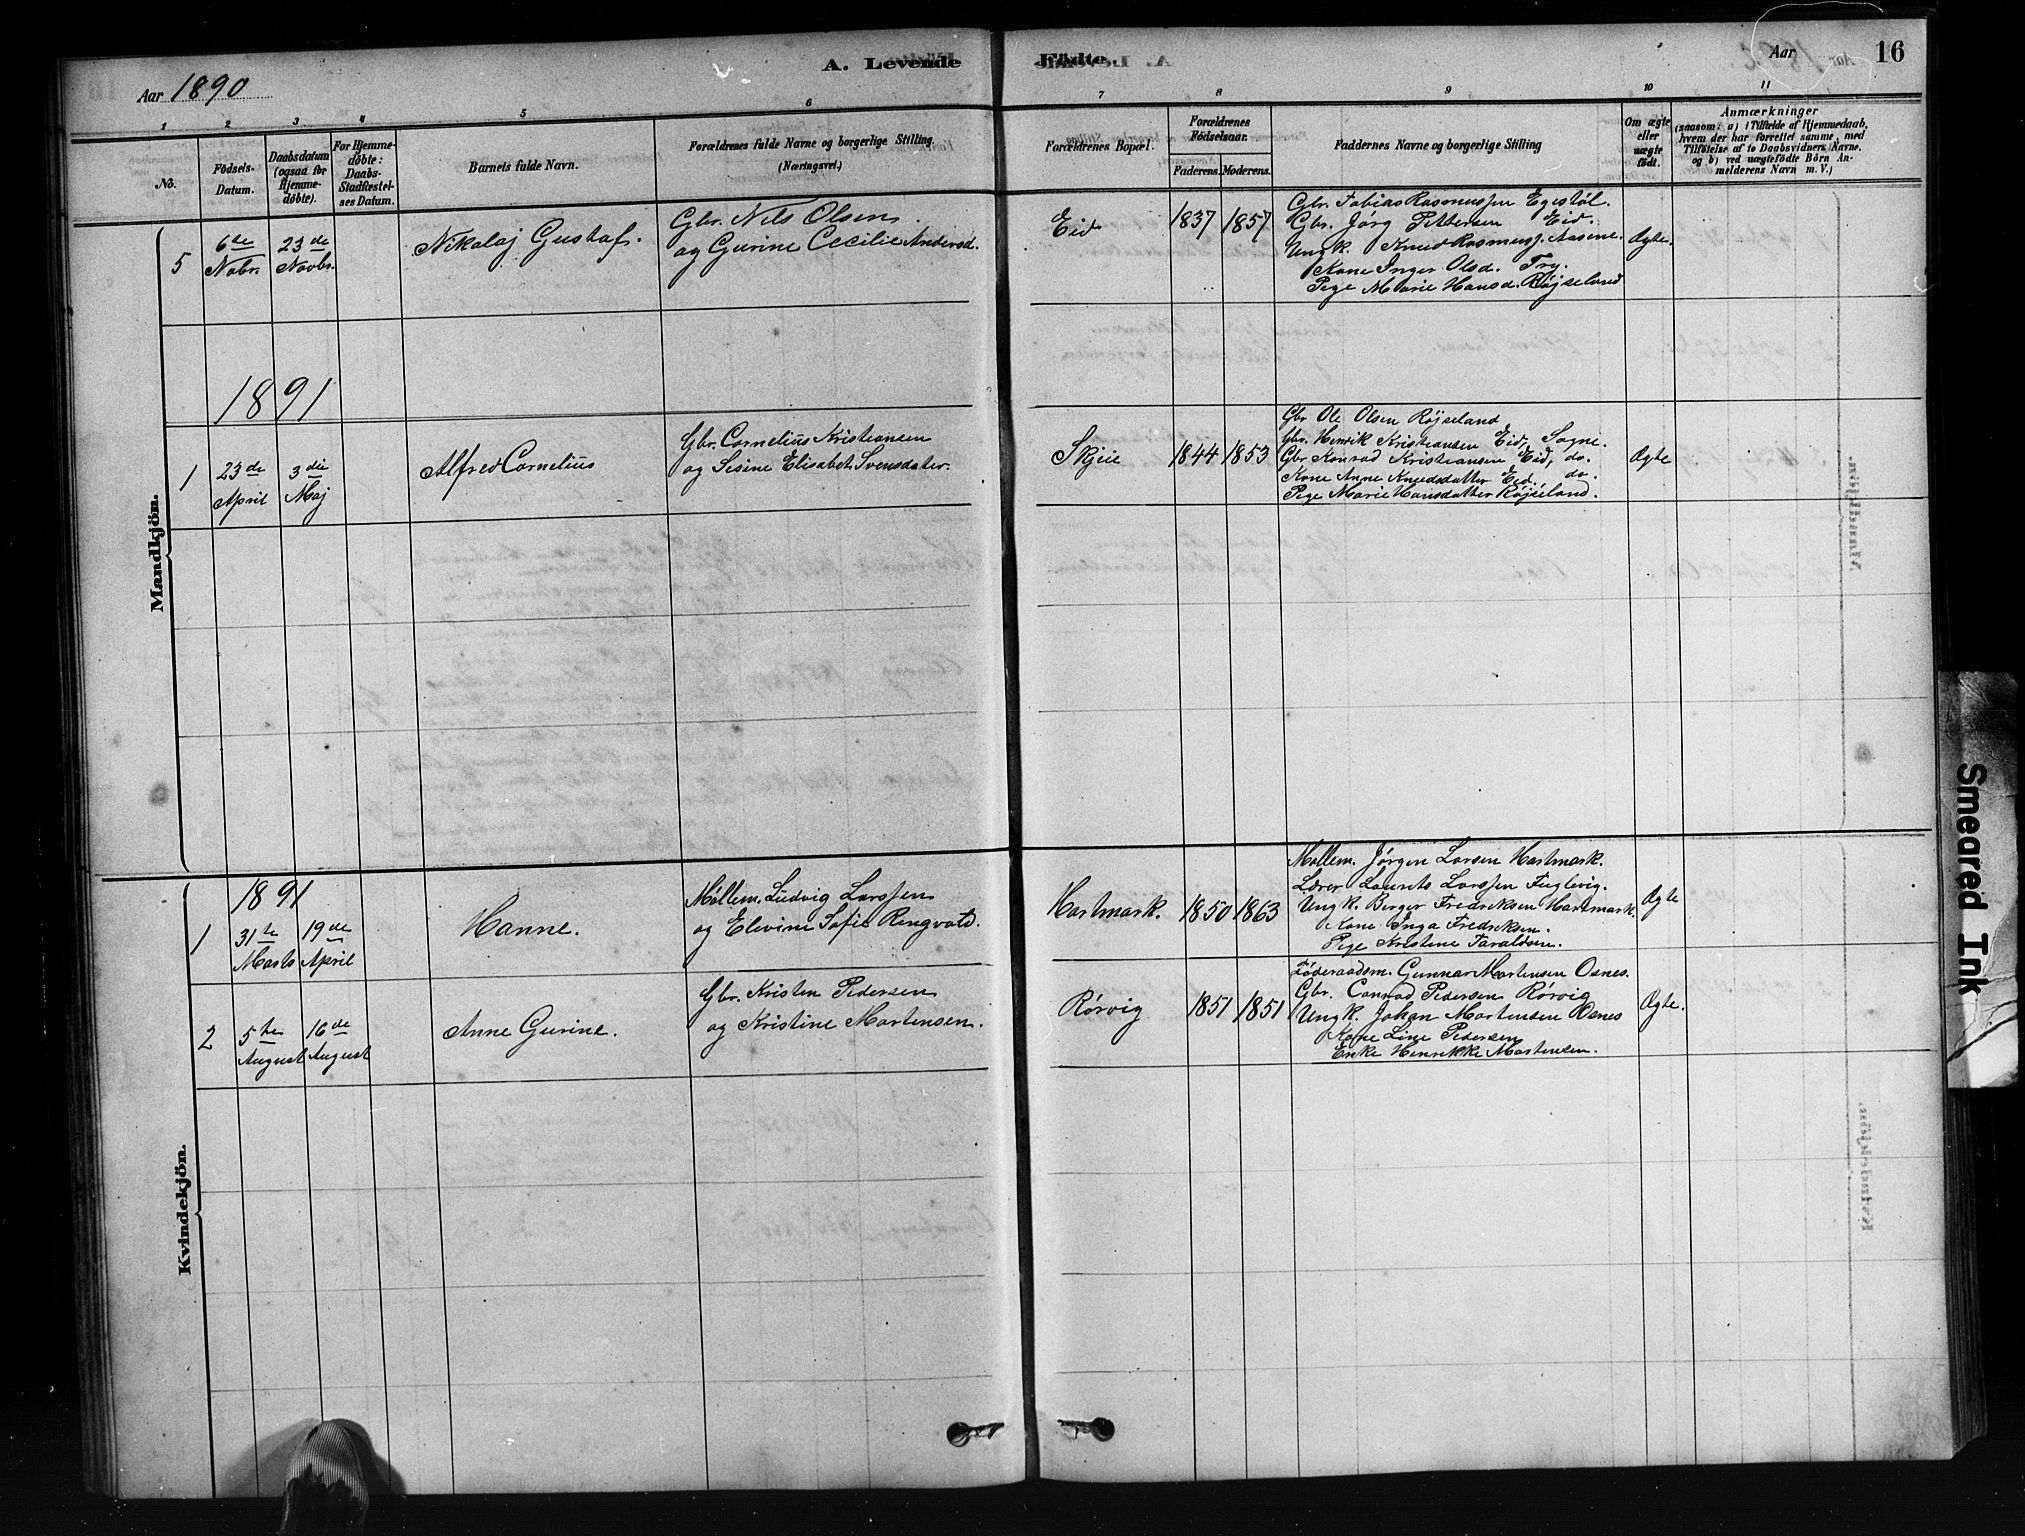 Aar 1890
A. Levende
Födte.
Aar
16
1
2
3
4
5
6
7
8
9
10
11
No.
Födsels-
Datum.
Daabsdatum
(ogsaa for
Hjemme-
døbte).
For Hjemme-
døbte:
Daabs-
Stadfæstel-
ses Datum.
Barnets fulde Navn.
Forældrenes fulde Navne og borgerlige Stilling
(Næringsvei.)
Forældrenes Bopæl.
Forældrenes
Födselsaar.
Faderens.
Moderens.
Faddernes Navne og borgerlige Stilling
Om ægte
eller
uægte
født.
Anmærkninger
(saasom: a) i Tilfælde af Hjemmedaab,
hvem der har forrettet samme, med
Tilföielse af to Daabsvidners Navne.
og b) ved uægtefödte Börn An-
melderens Navn m. V.)
Mandkjön.
5
6te
Nobr.
23de
Novbr.
Nikolaj Gustaf.
Gbr. Nils Olsen
og Gurine Cecilie Andersd.
Eid
1837
1857
Gbr. Tobias Rasmussen Egestøl.
Gbr. Jørg Pettersen Eid.
Ungk. Knud Rasmuss. Aasene.
Kone Inger Olsd. Try.
Pige Marie Hansd. Røjseland
Ægte.
1891
1
23de
April
3die
Maj
Alfred Cornelius
Gbr. Cornelius Kristiansen
og Sisine Elisabet Svensdater.
Skjeie
1844
1853
Gbr Ole Olsen Røjseland
Gbr. Henrik Kristiansen Eid, Sogne.
Gbr Konrad Kristiansen Eid, do.
Kone Anne Knudsdatter Eid. do.
Pige Marie Hansdatter Røjseland.
Ægte
Kvindekjön.
1891
1
31te
Marts
19de
April
Hanne.
Møllem. Ludvig Larssen
og Elevine Sofie Ringvold.
Hartmark.
1850
1863
Møllem. Jørgen Larsen Hartmark.
Lærer Laurits Larssen Fuglevig.
Ungk. Berger Fredriksen Hartmark.
Kone Inga Fredriksen.
Pige Kristine Taraldsen.
Ægte
2
5te
August
16de
August
Anne Gurine.
Gbr. Kristen Pedersen
og Kristine Martensen.
Rørvig
1851
1851
Føderaadsm. Gunnar Martensen Osnes.
Gbr. Conrad Pedersen Rørvig
Ungk. Johan Martensen Osnes
Kone Line Pedersen
Enke Henrikke Martensen.
Ægte.
Smeared Ink